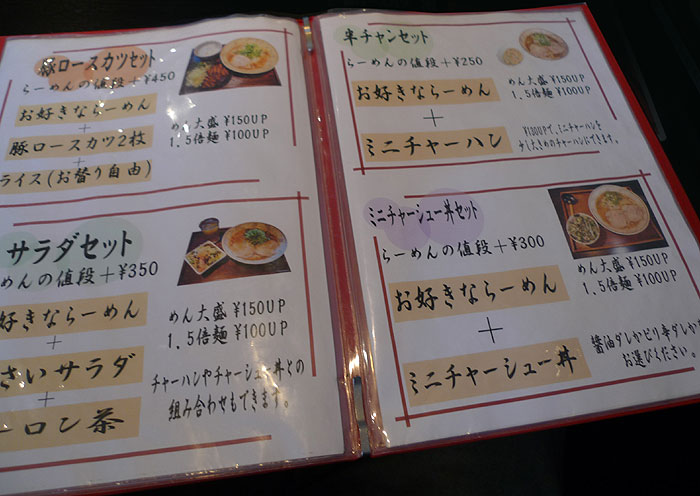 豚ロースカツセット
らーめんの値段+¥450
お好きならーめん
+
豚ロースカツ2枚
+
ライス(お替り自由)
めん大盛 ¥150UP
1.5倍麺 ¥100UP
サラダセット
めんの値段+¥350
好きならーめん
+
さいサラダ
+
ーロン茶
めん大盛 ¥150UP
1.5倍麺 ¥100UP
チャーハンやチャーシュー丼との
組み合わせもできます。
半チャンセット
らーめんの値段+¥250
お好きならーめん
+
ミニチャーハン
めん大盛 ¥150UP
1.5倍麺 ¥100UP
¥130UPで、ミニチャーハンを
少し大きめのチャーハンにできます。
ミニチャーシュー丼セット
らーめんの値段+¥300
お好きならーめん
+
ミニチャーシュー丼
めん大盛 ¥150UP
1.5倍麺 ¥100UP
醤油ダレかピリ辛ダレか
お選びください。